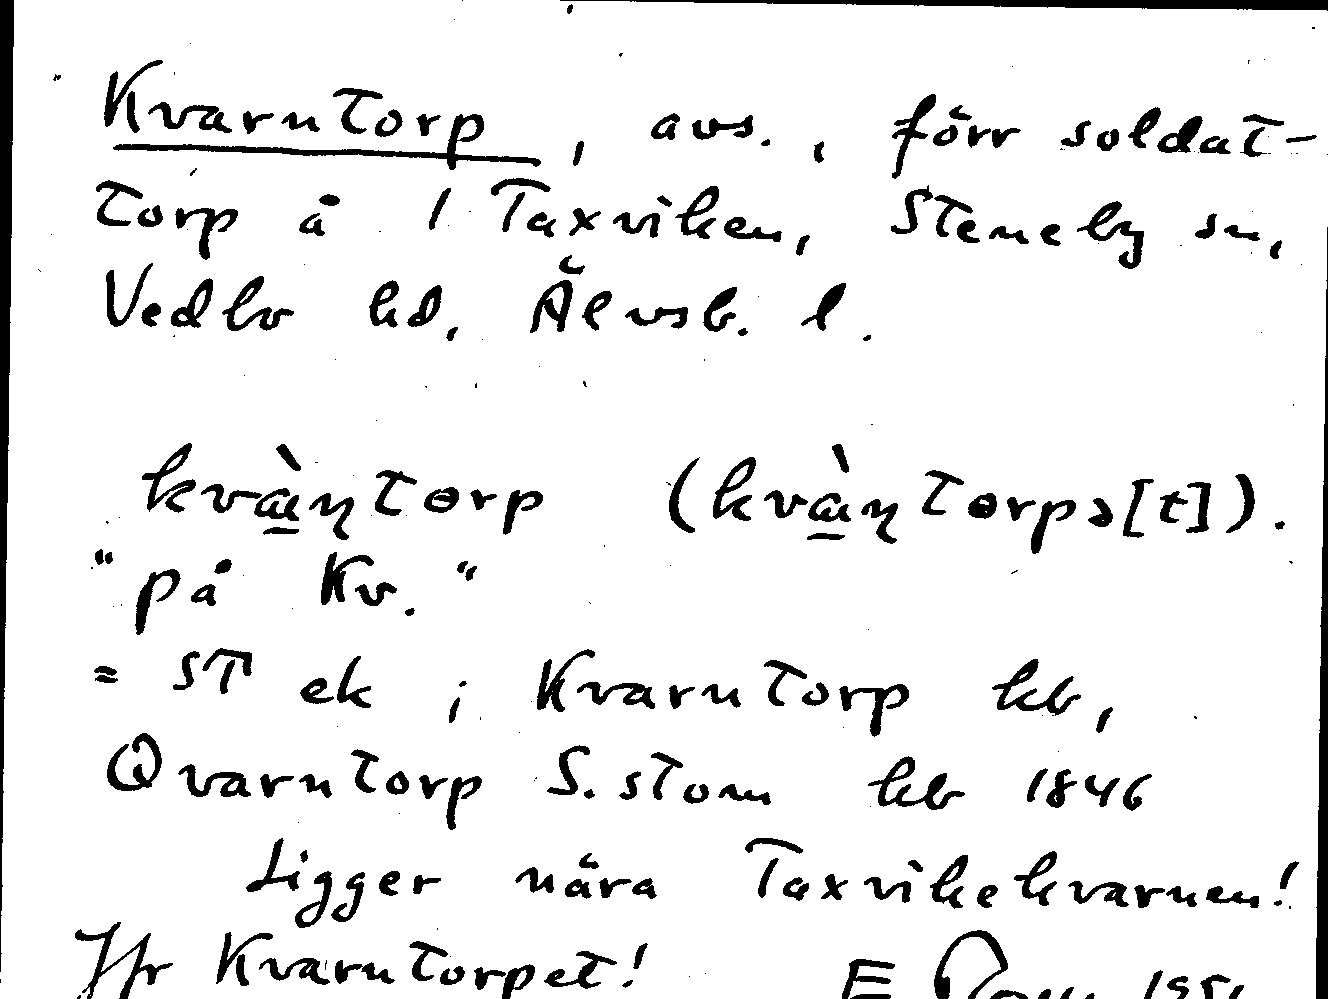 Kvarntorp, avs., förr soldat-
torp å 1 Taxviken, Steneby sn,
Vedbo hd, Älvsb. l.
kvæ̀ɳtɵrp (kvæ̀ɳtɵrpə[t]).
"på Kv."
= ST ek ; Kvarntorp kb,
Qvarntorp S. stom kb 1846
Ligger nära Taxvikekvarnen!
Jfr Kvarntorpet! E